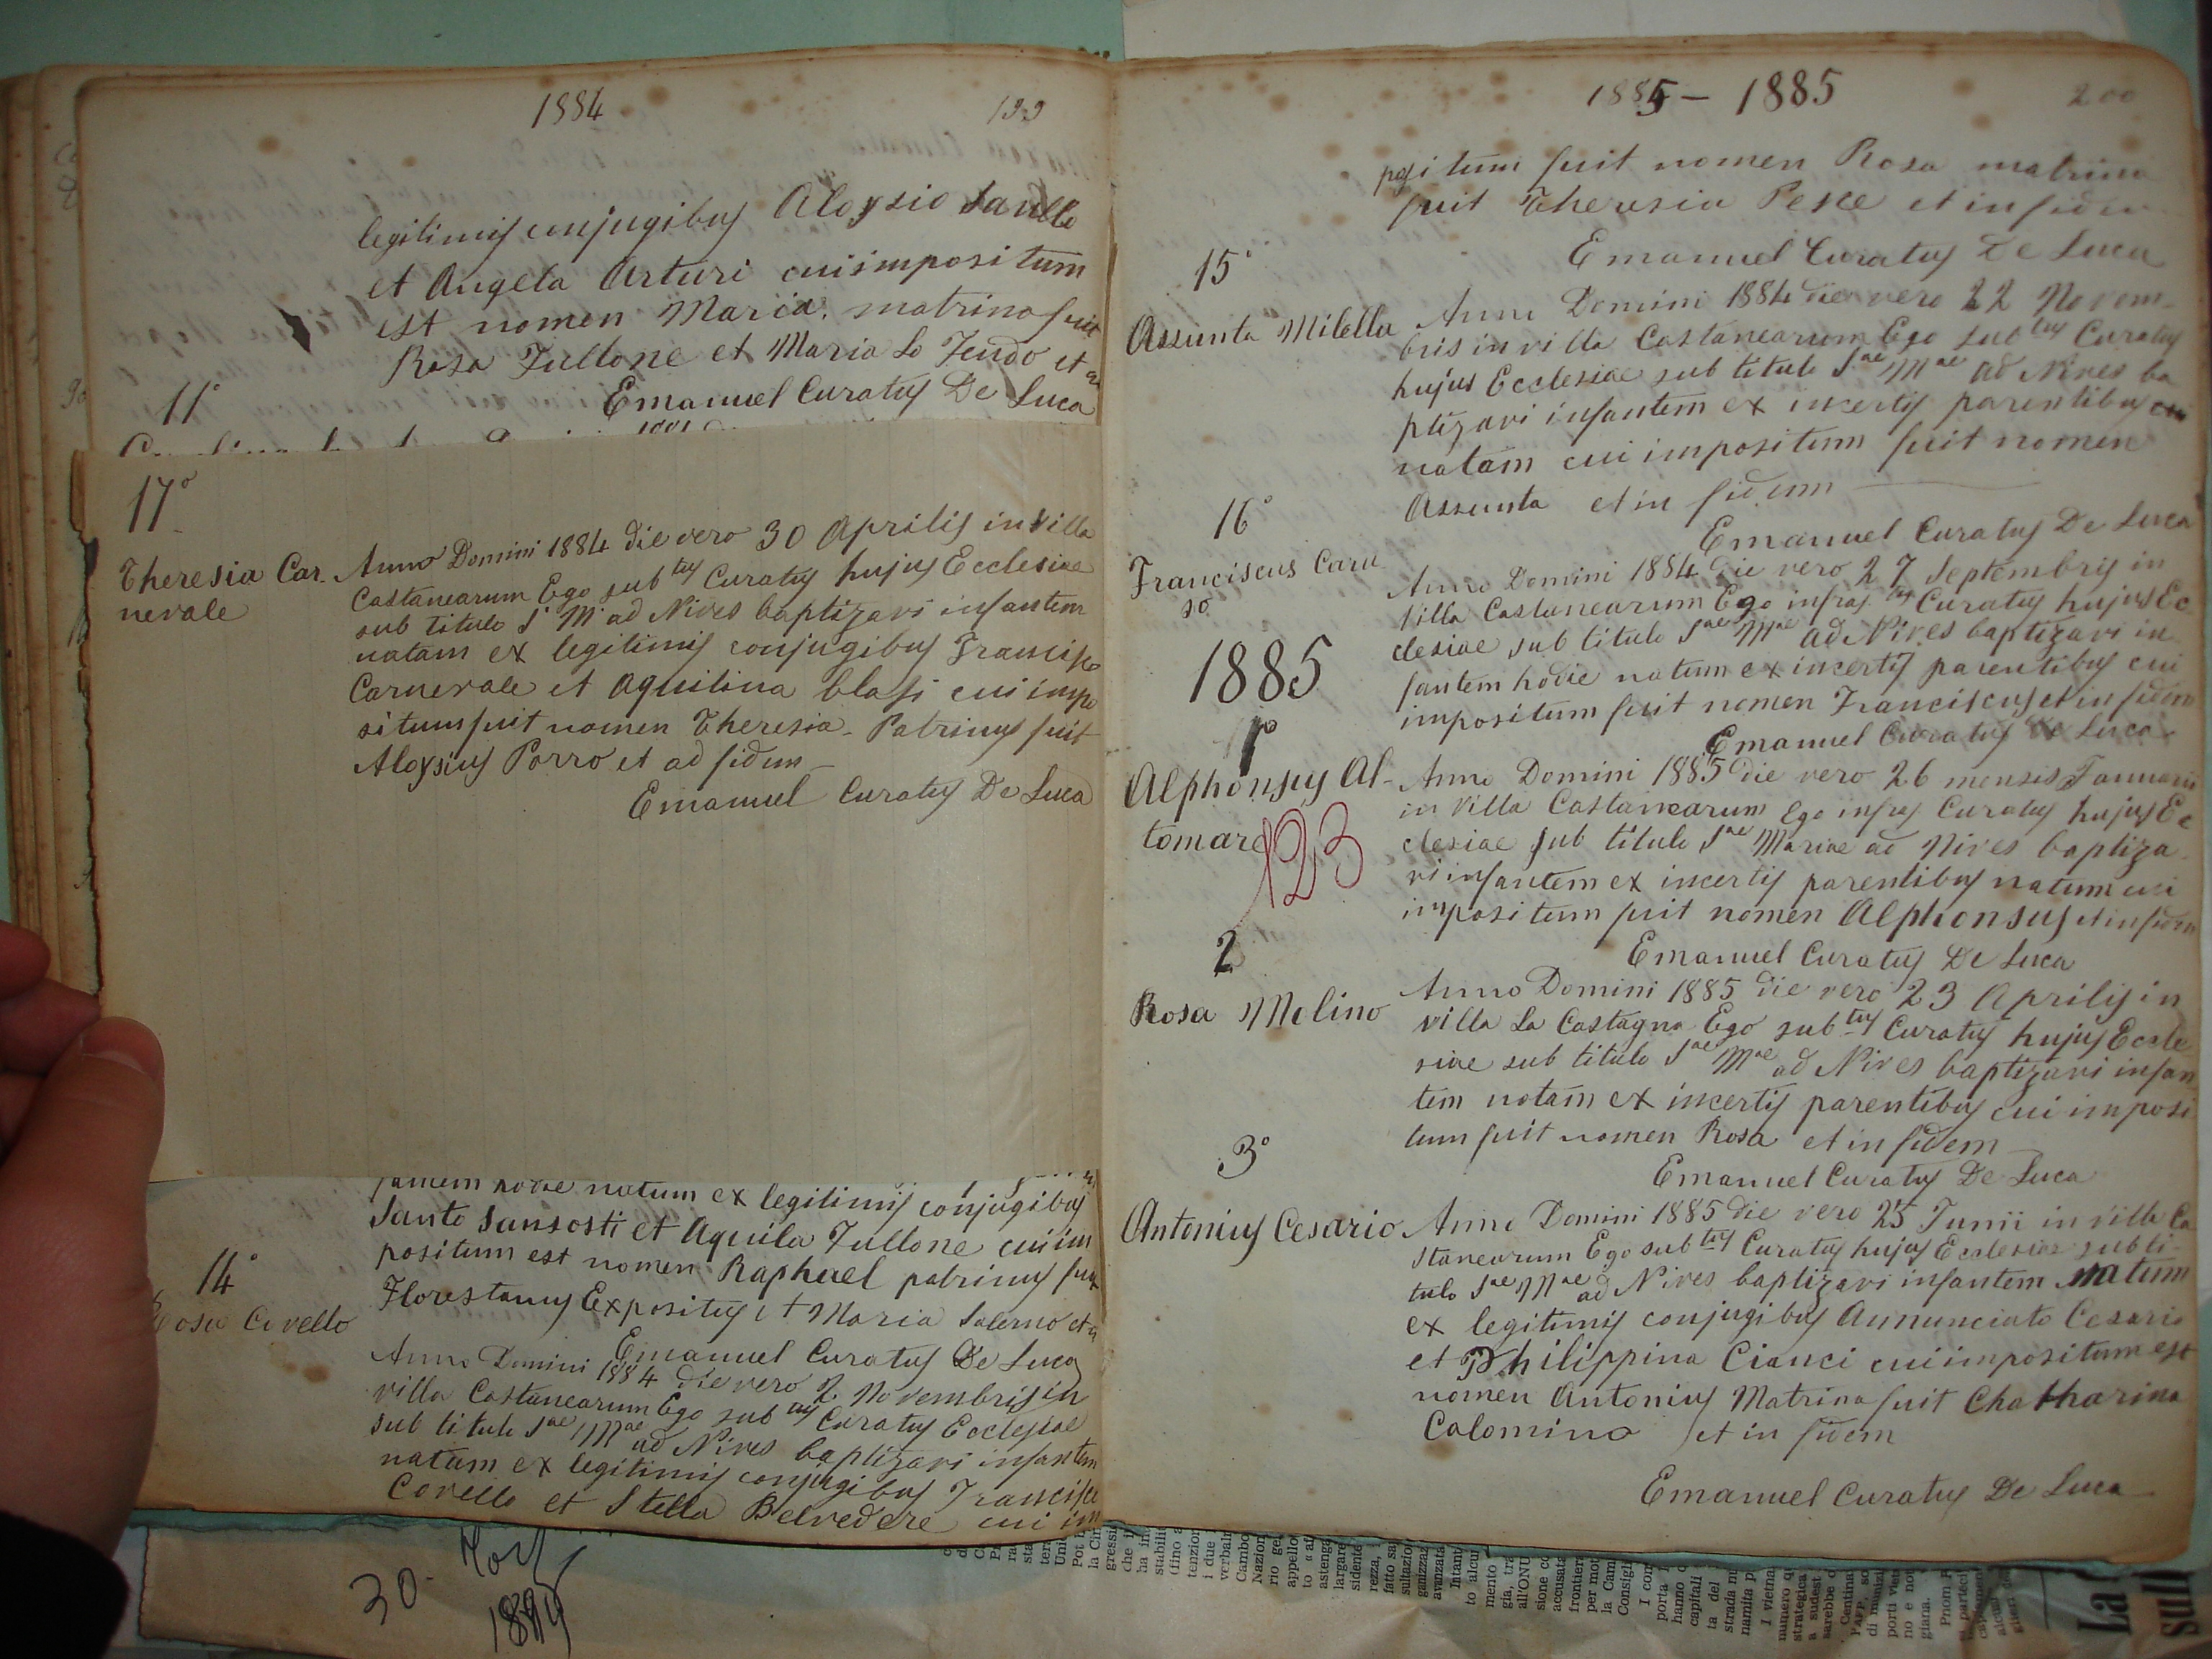 1884
199
legitimis conjugibus Aloysio
et Angela Arturi cui impositum
est nomen Maria. matrina fuit
Rosa Fullone et Maria Lo Feudo et
Emanuel Curatus De Luca
11°
17°
Theresia Car
nevale
Anno Domini 1884 die vero 30 Aprilis in Villa
Castanearum Ego sub tus Curatus hujus Ecclesiae
sub titulo S M ad Nives baptizavi infantem
natam ex legitimis conjugibus Francisco
Carnevale et Aquilina blasi cui impo
situm fuit nomen Theresia - Patrinus fuit
Aloysius Porro et ad fidem
Emanuel Curatus De Luca
natum ex legitimis conjugibus
Santo Sansosti et Aquila Fullone cui im
positum est nomen Raphael patrinus fuit
Florestanus Expositus et Maria Salerno et
Emanuel Curatus De Luca
14°
Covello
Anno Domini 1884 die vero 2 Novembris in
villa Castanearum Ego sub tus Curatus Ecclesiae
sub titulo Sae Mae ad Nives baptizavi infantem
natam ex legitimis conjugibus Francisco
Covello et Stella Belvedere cui im
30
1885 - 1885
200
positum fuit nomen Rosa matrina
fuit Theresia Pesce et in fidem
Emanuel Curatus De Luca
15°
Assunta Milella
Anno Domini 1884 die vero 22 Novem-
bris in villa Castanearum Ego sub tus Curatus
hujus Ecclesiae sub titulo Sae Mae ad Nives ba
ptizavi infantem ex incertis parentibus
natam cui impositum fuit nomen
Assunta et in fidem
Emanuel Curatus De Luca
16°
Franciscus Caru
so
Anno Domini 1884 die vero 27 Septembris in
Villa Castanearum Ego infras tus Curatus hujus Ec
clesiae sub titulo Sae Mae ad Nives baptizavi in
fantem hodie natum ex incertis parentibus cui
impositum fuit nomen Franciscus et in fidem
Emanuel Curatus De Luca
1885
1°
Alphonsus Al-
tomare
123
Anno Domini 1885 die vero 26 mensis Januarii
in Villa Castanearum Ego infras Curatus hujus Ec
clesiae sub titulo Sae Mariae ad Nives baptiza
vi infantem ex incertis parentibus natum cui
impositum fuit nomen Alphonsus et in fidem
Emanuel Curatus De Luca
2
Rosa Molino
Anno Domini 1885 die vero 23 Aprilis in
villa La Castagna Ego sub tus Curatus hujus Eccle
siae sub titulo Sae Mae ad Nives baptizavi infan
tem natam ex incertis parentibus cui imposi
tum fuit nomen Rosa et in fidem
Emanuel Curatus De Luca
3°
Antonius Cesario
Anno Domini 1885 die vero 25 Junii in villa Ca
stanearum Ego sub tus Curatus hujus Ecclesiae sub ti-
tulo Sae Mae ad Nives baptizavi infantem natum
ex legitimis conjugibus Annunciato Cesario
et Philippina Cianci cui impositum est
nomen Antonius Matrina fuit Chatharina
Calomino et in fidem
Emanuel Curatus De Luca